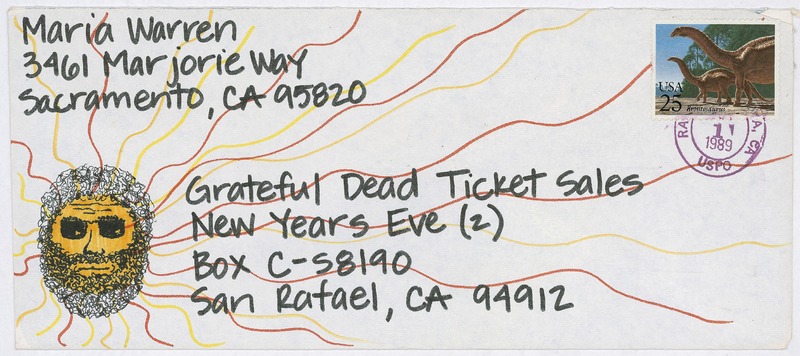 Maria Warren
3461 Marjorie Way
Sacramento, CA 95820
USA
25 Brontosaurus
1
1989
USPO
Grateful Dead Ticket Sales
New Years Eve (2)
Box C-S8190
San Rafael, CA 94912